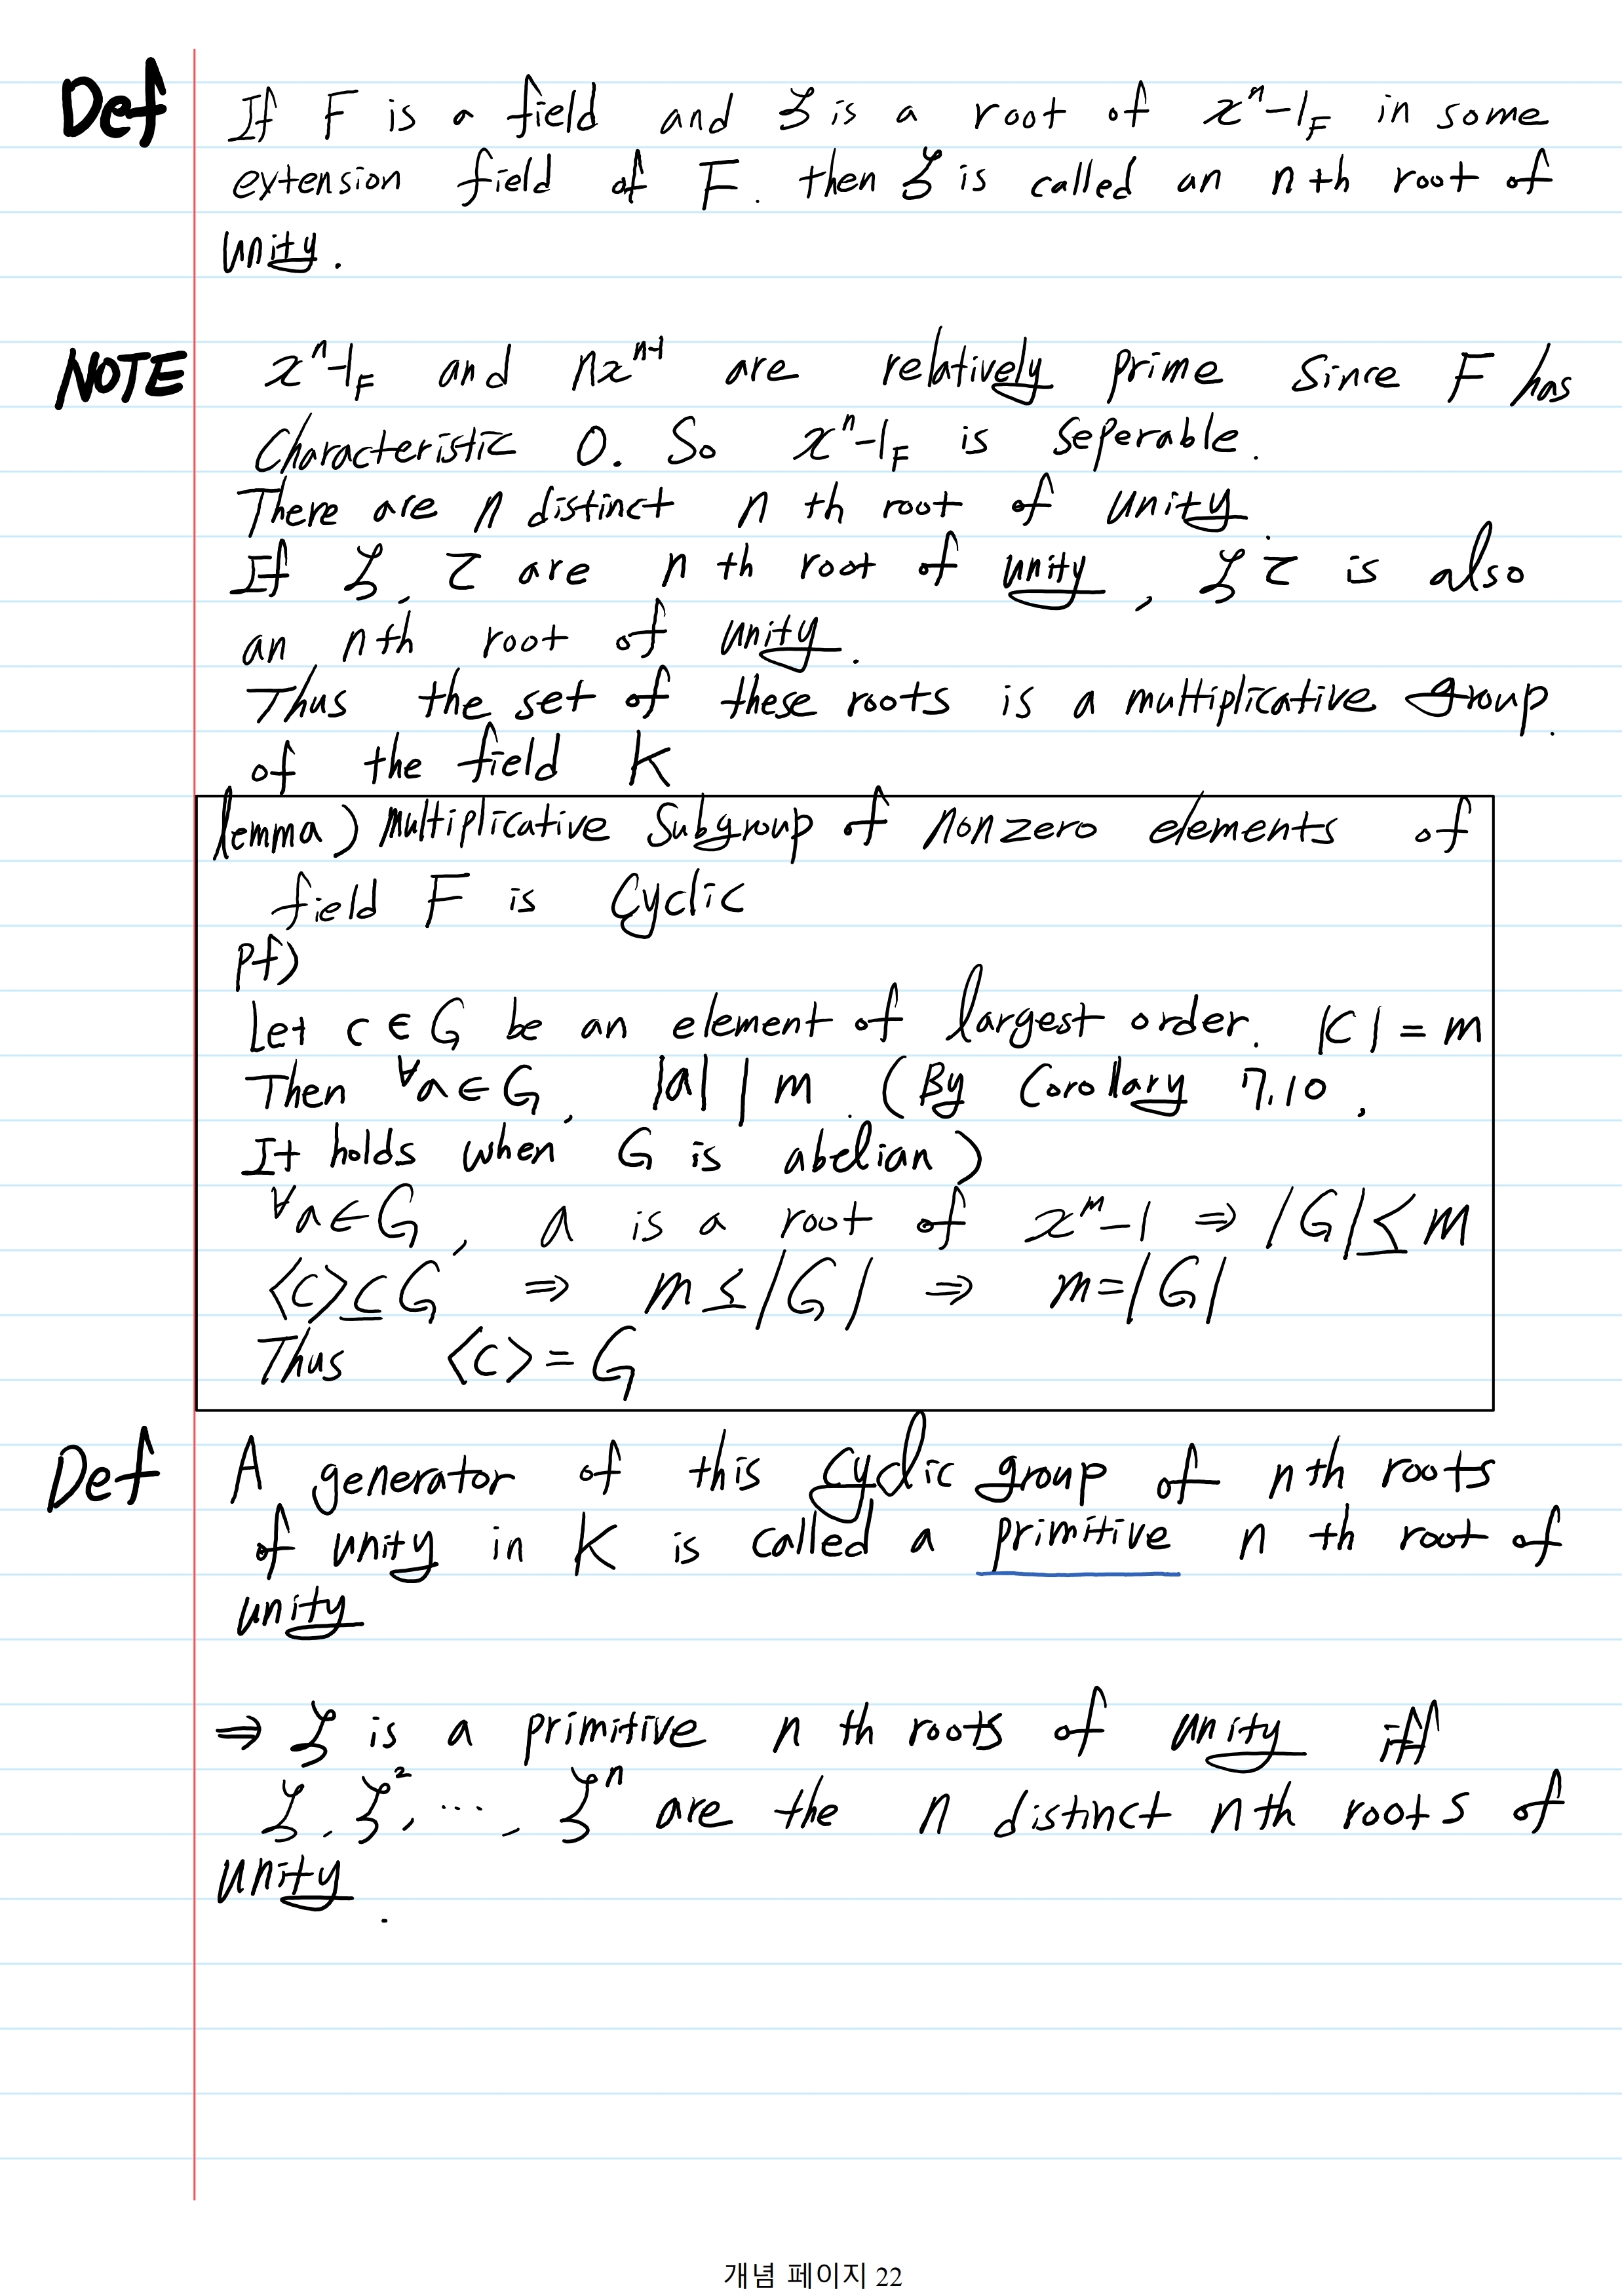 Def If F is a field and ζ is a root of xⁿ-1_F in some
extension field of F. then ζ is called an nth root of
unity.
NOTE xⁿ-1_F and nxⁿ⁻¹ are relatively prime since F has
Characteristic 0. So xⁿ-1_F is seperable.
There are n distinct n th root of unity.
If ζ, τ are n th root of unity, ζτ is also
an nth root of unity.
Thus the set of these roots is a multiplicative group.
of the field K
lemma) Multiplicative Subgroup of nonzero elements of
field F is Cyclic
pf)
Let c ∈ G be an element of largest order. |c| = m
Then ∀a ∈ G, |a| | m. (By Corollary 7.10,
It holds when G is abelian)
∀a ∈ G, a is a root of xᵐ-1 ⇒ |G| ≤ m
⟨c⟩ ⊆ G ⇒ m ≤ |G| ⇒ m = |G|
Thus ⟨c⟩ = G
Def A generator of this cyclic group of nth roots
of unity in K is called a primitive n th root of
unity
⇒ ζ is a primitive n th roots of unity iff
ζ, ζ², ⋯, ζⁿ are the n distinct nth roots of
unity.
개념 페이지 22